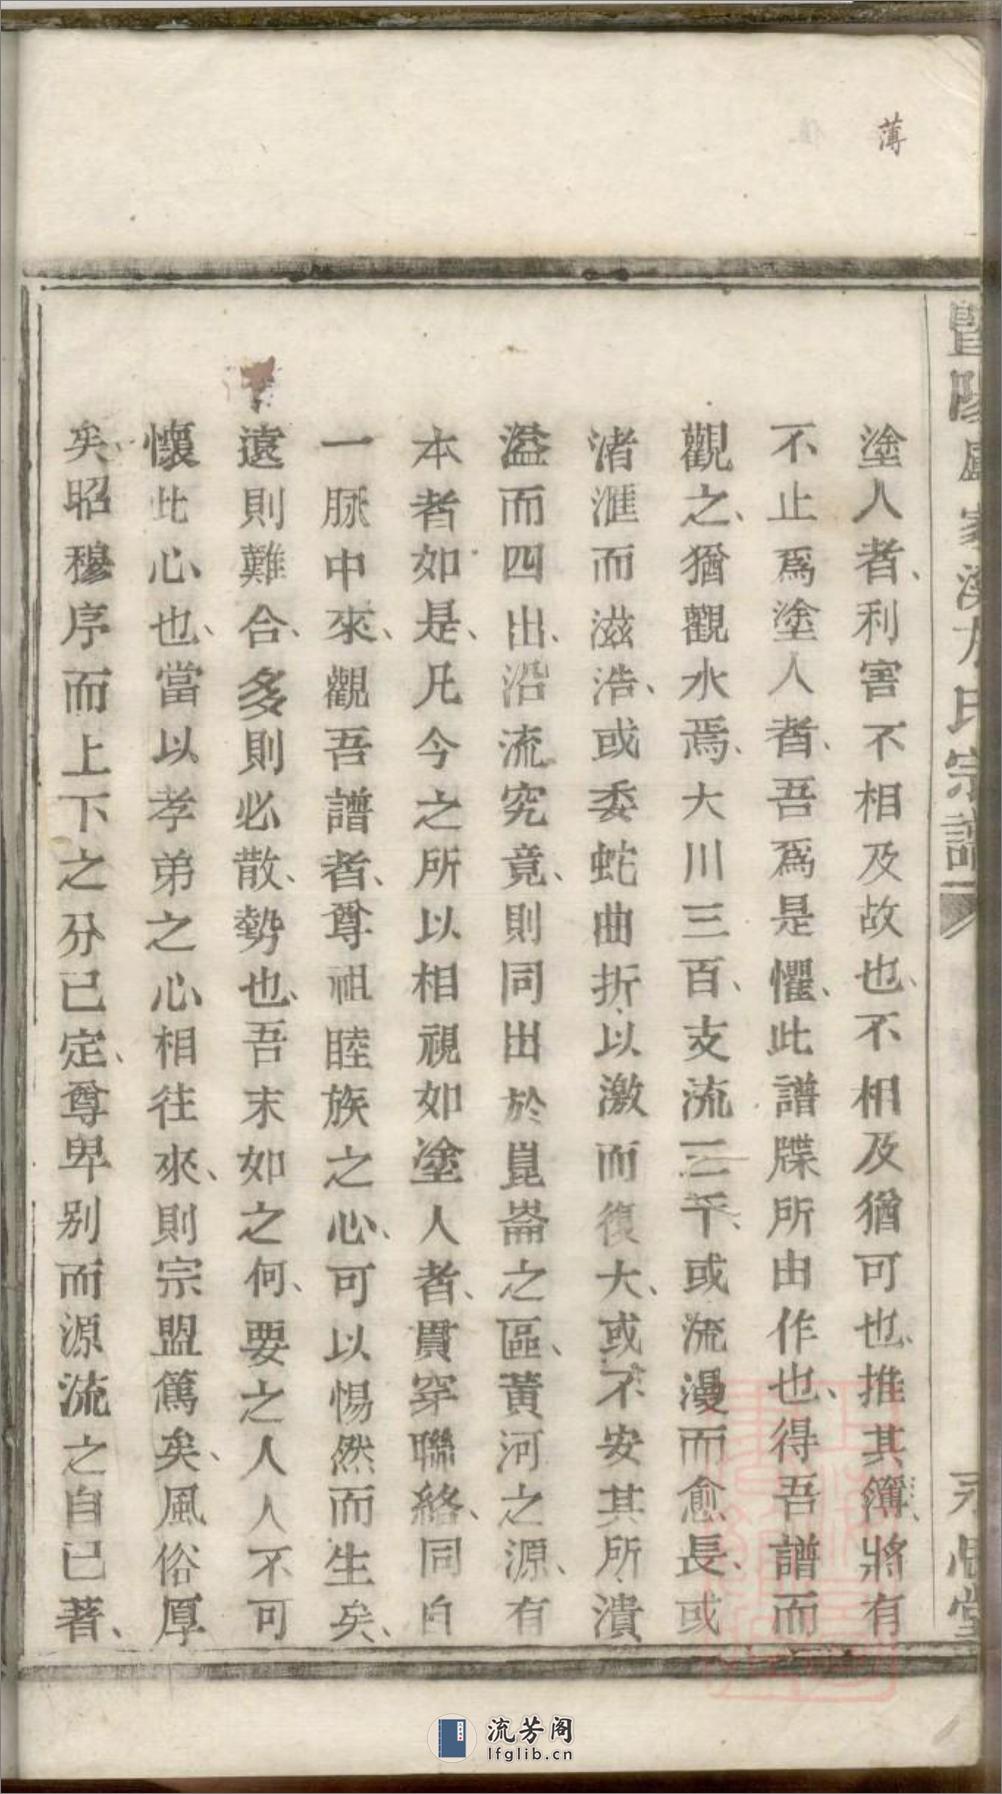 薄
塗人者、利害不相及故也、不相及猶可也、推其簿、將有
不止爲塗人者、吾爲是懼、此譜牒所由作也、得吾譜而
觀之、猶觀水焉、大川三百、支流三千、或流漫而愈長、或
渚滙而滋浩、或委蛇曲折、以激而復大、或不安其所潰
溢而四出、沿流究竟、則同出於崑崙之區、黃河之源、有
本者如是、凡今之所以相視如塗人者、貫穿聯絡、同自
一脈中來、觀吾譜者、尊祖睦族之心、可以惕然而生矣、
遠則難合、多則必散、勢也、吾末如之何、要之人人不可
懷此心也、當以孝弟之心相往來、則宗盟篤矣、風俗厚
矣、昭穆序而上下之分已定、尊卑别而源流之自已著、
暨陽 家溪方氏宗譜
永思堂
流芳阁
lfglib.cn